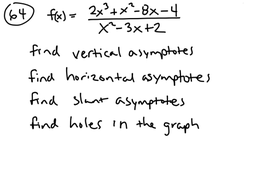 64 f(x) = (2x³+x²-8x-4)/(x²-3x+2)
find vertical asymptotes
find horizontal asymptotes
find slant asymptotes
find holes in the graph